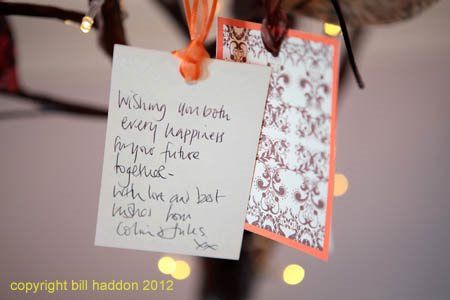 Wishing you both
every happiness
for your future
together -
with love and best
wishes from
Colin & Jules
xxx
copyright bill haddon 2012